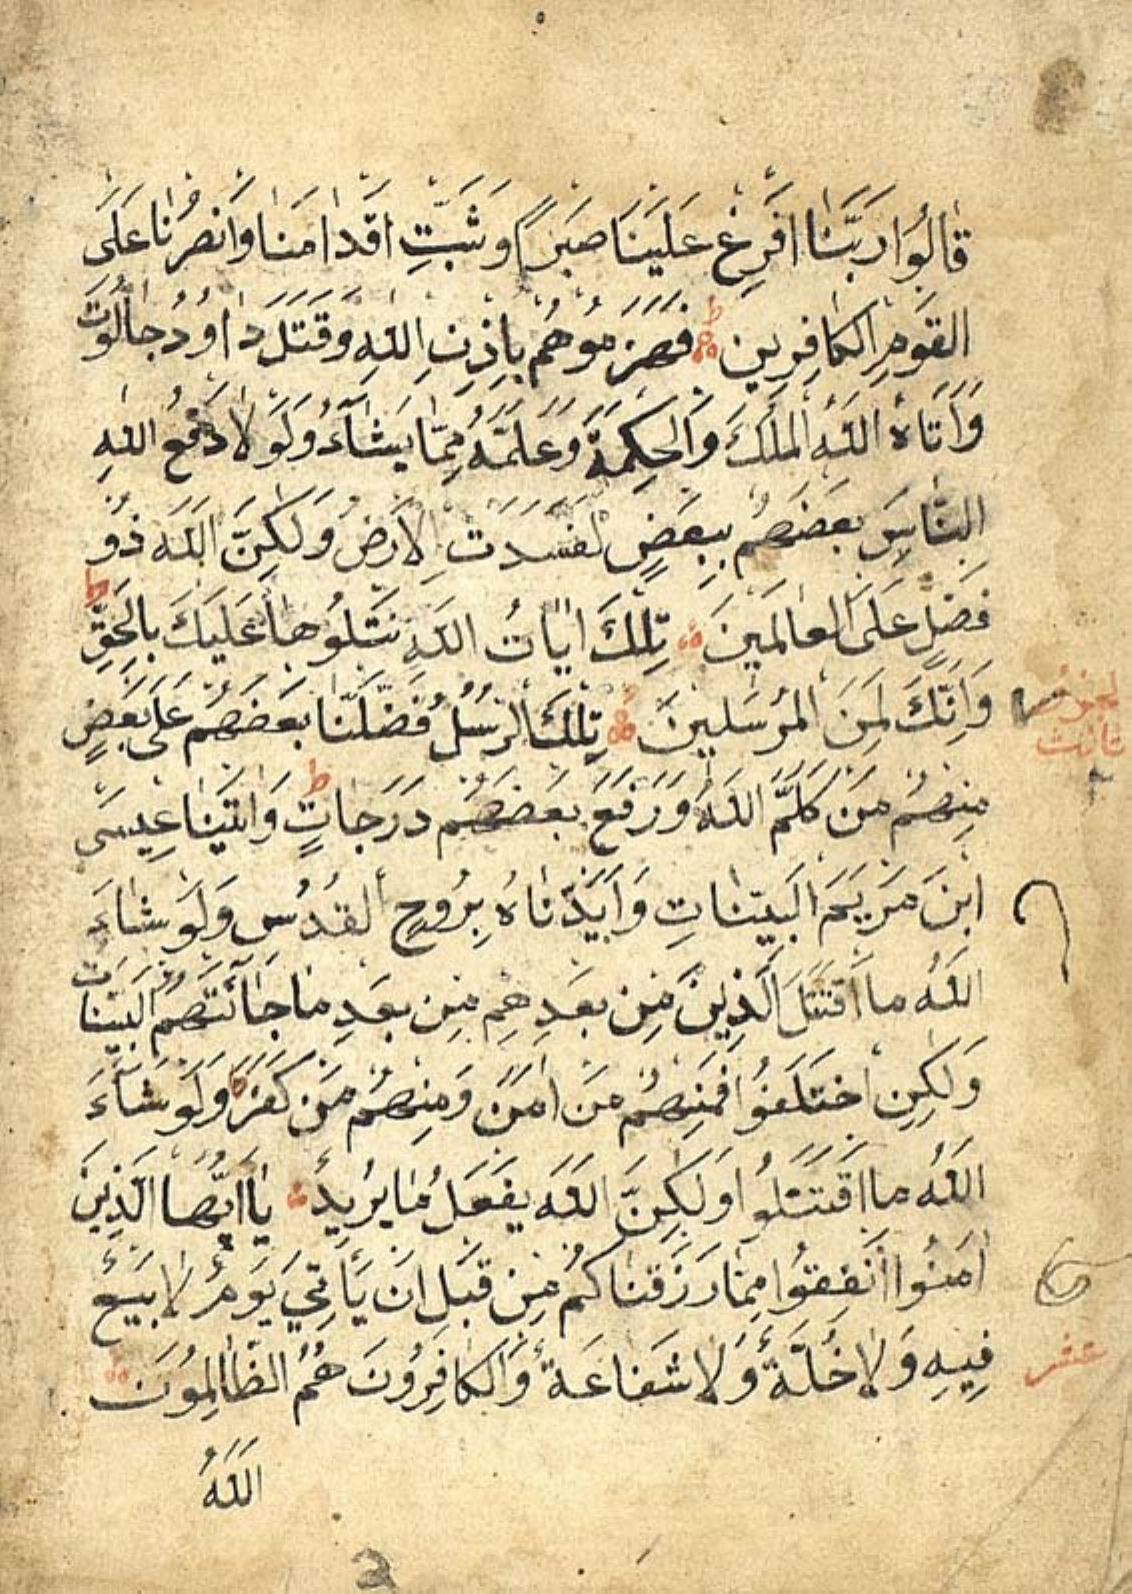 قَالُوا رَبَّنَا اَفْرِغْ عَلَيْنَا صَبْرًا وَثَبِّتْ اَقْدَامَنَا وَانْصُرْنَا عَلَى
الْقَوْمِ الْكَافِرِينَ فَهَزَمُوهُمْ بِاِذْنِ اللّٰهِ وَقَتَلَ دَاوُدُ جَالُوتَ
وَاٰتَاهُ اللّٰهُ الْمُلْكَ وَالْحِكْمَةَ وَعَلَّمَهُ مِمَّا يَشَآءُ وَلَوْلَا دَفْعُ اللّٰهِ
النَّاسَ بَعْضَهُمْ بِبَعْضٍ لَفَسَدَتِ الْاَرْضُ وَلٰكِنَّ اللّٰهَ ذُو
فَضْلٍ عَلَى الْعَالَمِينَ تِلْكَ اٰيَاتُ اللّٰهِ نَتْلُوهَا عَلَيْكَ بِالْحَقِّ
وَاِنَّكَ لَمِنَ الْمُرْسَلِينَ تِلْكَ الرُّسُلُ فَضَّلْنَا بَعْضَهُمْ عَلَى بَعْضٍ
مِنْهُمْ مَنْ كَلَّمَ اللّٰهُ وَرَفَعَ بَعْضَهُمْ دَرَجَاتٍ وَاٰتَيْنَا عِيسَى
ابْنَ مَرْيَمَ الْبَيِّنَاتِ وَاَيَّدْنَاهُ بِرُوحِ الْقُدُسِ وَلَوْ شَاءَ
اللّٰهُ مَا اقْتَتَلَ الَّذِينَ مِنْ بَعْدِهِمْ مِنْ بَعْدِ مَا جَائَتْهُمُ الْبَيِّنَاتُ
وَلٰكِنِ اخْتَلَفُوا فَمِنْهُمْ مَنْ اٰمَنَ وَمِنْهُمْ مَنْ كَفَرَ وَلَوْ شَآءَ
اللّٰهُ مَا اقْتَتَلُوا وَلٰكِنَّ اللّٰهَ يَفْعَلُ مَا يُرِيدُ يَا اَيُّهَا الَّذِينَ
اٰمَنُوا اَنْفِقُوا مِمَّا رَزَقْنَاكُمْ مِنْ قَبْلِ اَنْ يَاْتِيَ يَوْمٌ لَا بَيْعٌ
فِيهِ وَلَا خُلَّةٌ وَلَا شَفَاعَةٌ وَالْكَافِرُونَ هُمُ الظَّالِمُونَ
عشر
اللّٰهُ